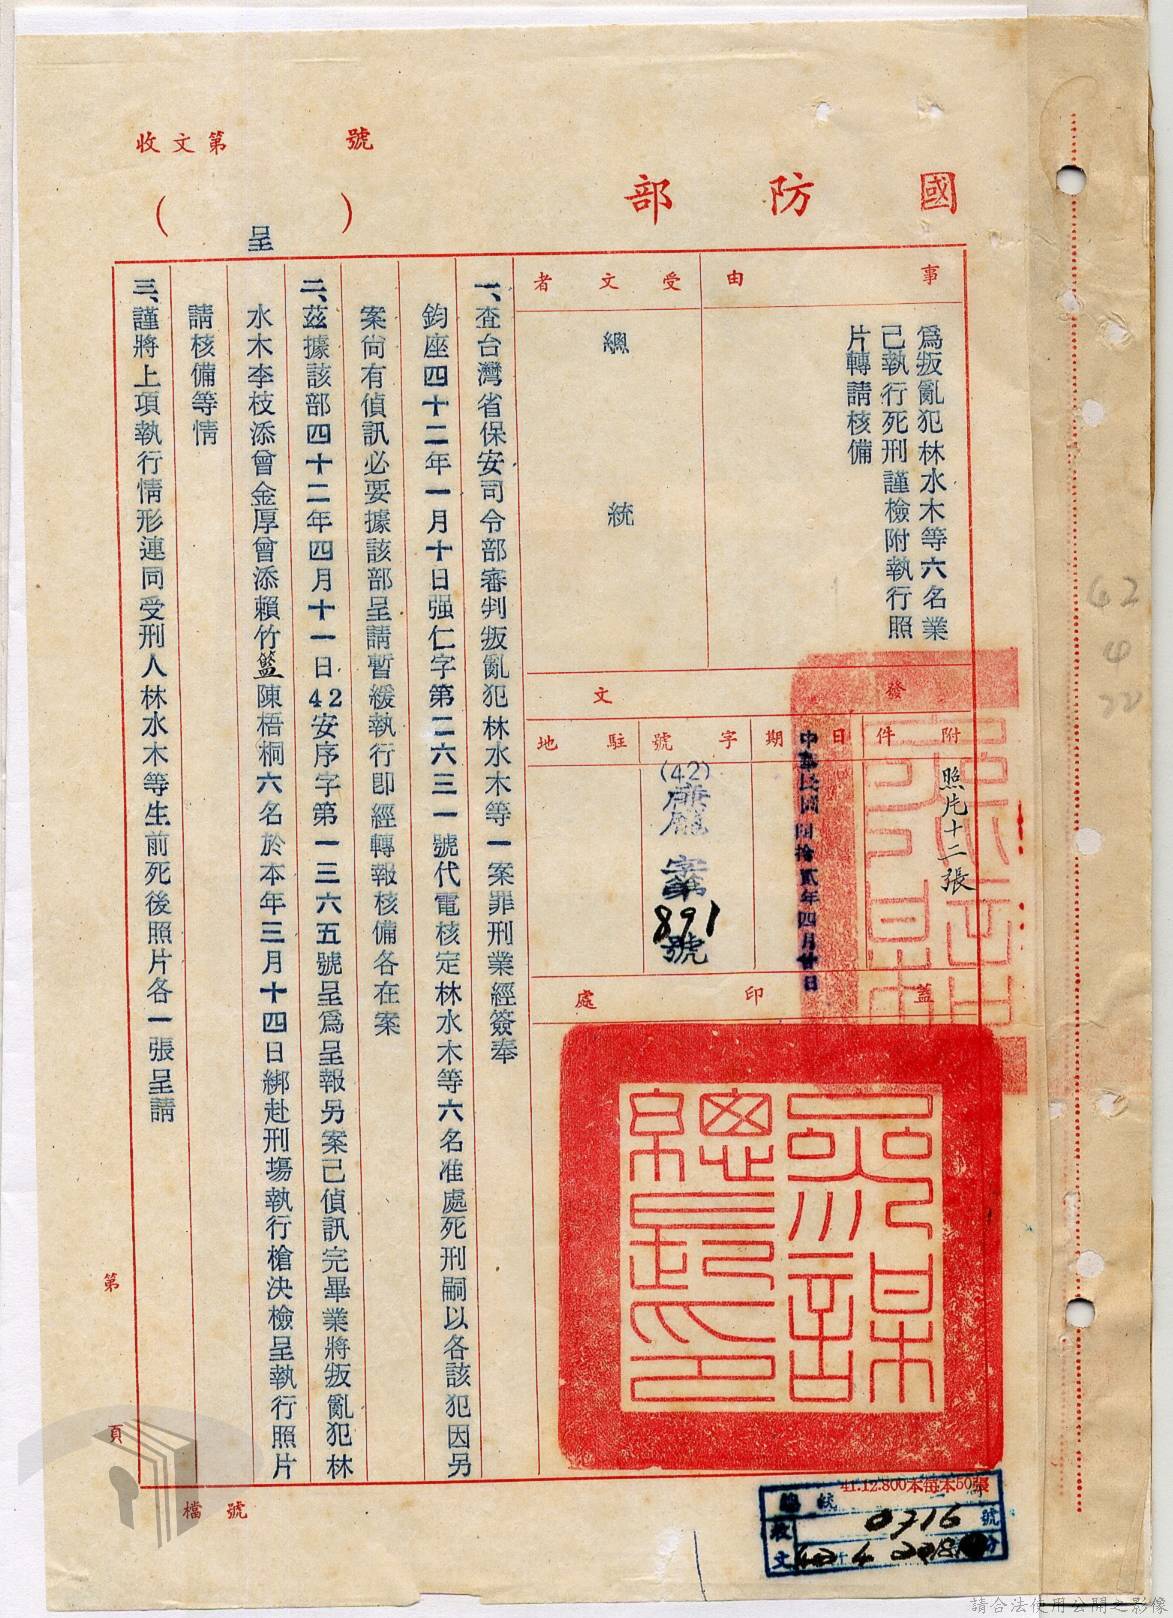 收文第　　　號
國防部
(　　　)
呈
事由
為叛亂犯林水木等六名業
已執行死刑謹檢附執行照
片轉請核備
受文者
總統
發文
附件
照片十二張
日期
中華民國四拾貳年四月廿日
字號
(42)
字第
891
號
駐地
蓋印處
參謀總長印
一、查台灣省保安司令部審判叛亂犯林水木等一案罪刑業經簽奉
鈞座四十二年一月十日强仁字第二六三一號代電核定林水木等六名准處死刑嗣以各該犯因另
案尚有偵訊必要據該部呈請暫緩執行卽經轉報核備各在案
二、茲據該部四十二年四月十一日42安序字第一三六五號呈為呈報另案已偵訊完畢業將叛亂犯林
水木李枝添曾金厚曾添賴竹籃陳梧桐六名於本年三月十四日綁赴刑場執行槍決檢呈執行照片
請核備等情
三、謹將上項執行情形連同受刑人林水木等生前死後照片各一張呈請
第　頁
檔號
41.12.800本每本50張
收文
0716
號
42 4 22
分
42
4
22
請合法使用公開之影像